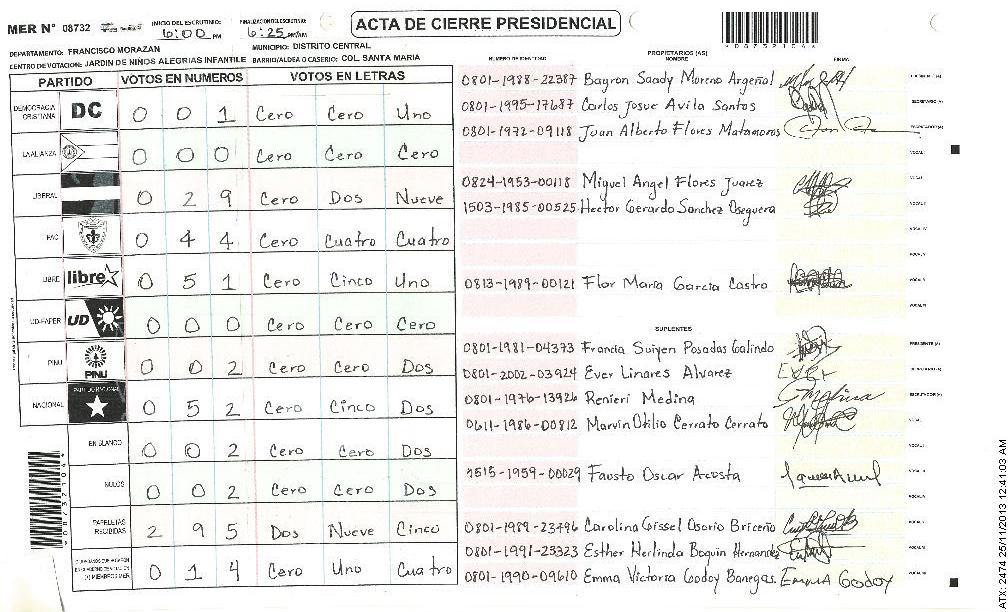 MER N° 08732
INICIO DEL ESCRUTINIO: 6:00 PM
FINALIZACION DEL ESCRUTINIO: 6:25 PM/AM
ACTA DE CIERRE PRESIDENCIAL
*08732104*
DEPARTAMENTO: FRANCISCO MORAZAN
MUNICIPIO: DISTRITO CENTRAL
CENTRO DE VOTACION: JARDIN DE NINOS ALEGRIAS INFANTILE
BARRIO/ALDEA O CASERIO: COL. SANTA MARIA
PARTIDO VOTOS EN NUMEROS VOTOS EN LETRAS
DEMOCRACIA CRISTIANA DC 0 0 1 Cero Cero Uno
LA ALIANZA 0 0 0 Cero Cero Cero
LIBERAL 0 2 9 Cero Dos Nueve
PAC 0 4 4 Cero Cuatro Cuatro
LIBRE libre 0 5 1 Cero Cinco Uno
UD-FAPER UD 0 0 0 Cero Cero Cero
PINU PINU 0 0 2 Cero Cero Dos
NACIONAL PARTIDO NACIONAL 0 5 2 Cero Cinco Dos
EN BLANCO 0 0 2 Cero Cero Dos
NULOS 0 0 2 Cero Cero Dos
PAPELETAS RECIBIDAS 2 9 5 Dos Nueve Cinco
0 1 4 Cero Uno Cuatro
PROPIETARIOS (AS)
NUMERO DE IDENTIDAD NOMBRE FIRMA
0801-1988-22387 Bayron Saady Moreno Argeñal
0801-1995-17687 Carlos Josue Avila Santos SECRETARIO (A)
0801-1972-09118 Juan Alberto Flores Matamoros ESCRUTADOR (A)
VOCAL I
0824-1953-00118 Miguel Angel Flores Juarez
1503-1985-00525 Hector Gerardo Sanchez Oseguera
VOCAL IV
0813-1989-00121 Flor María García Castro
SUPLENTES
0801-1981-04373 Francia Suiyen Posadas Galindo PRESIDENTE (A)
0801-2002-03924 Ever Linares Alvarez Ever SECRETARIO (A)
0801-1976-13926 Renieri Medina ESCRUTADOR (A)
0611-1986-00812 Marvin Otilio Cerrato Cerrato
1515-1959-00029 Fausto Oscar Acosta
0801-1989-23496 Carolina Gissel Osorio Briceño
0801-1991-23323 Esther Herlinda Boquin Hernandez
0801-1990-09610 Emma Victoria Godoy Banegas. Emma Godoy
*08732104*
ATX 2474 25/11/2013 12:41:03 AM